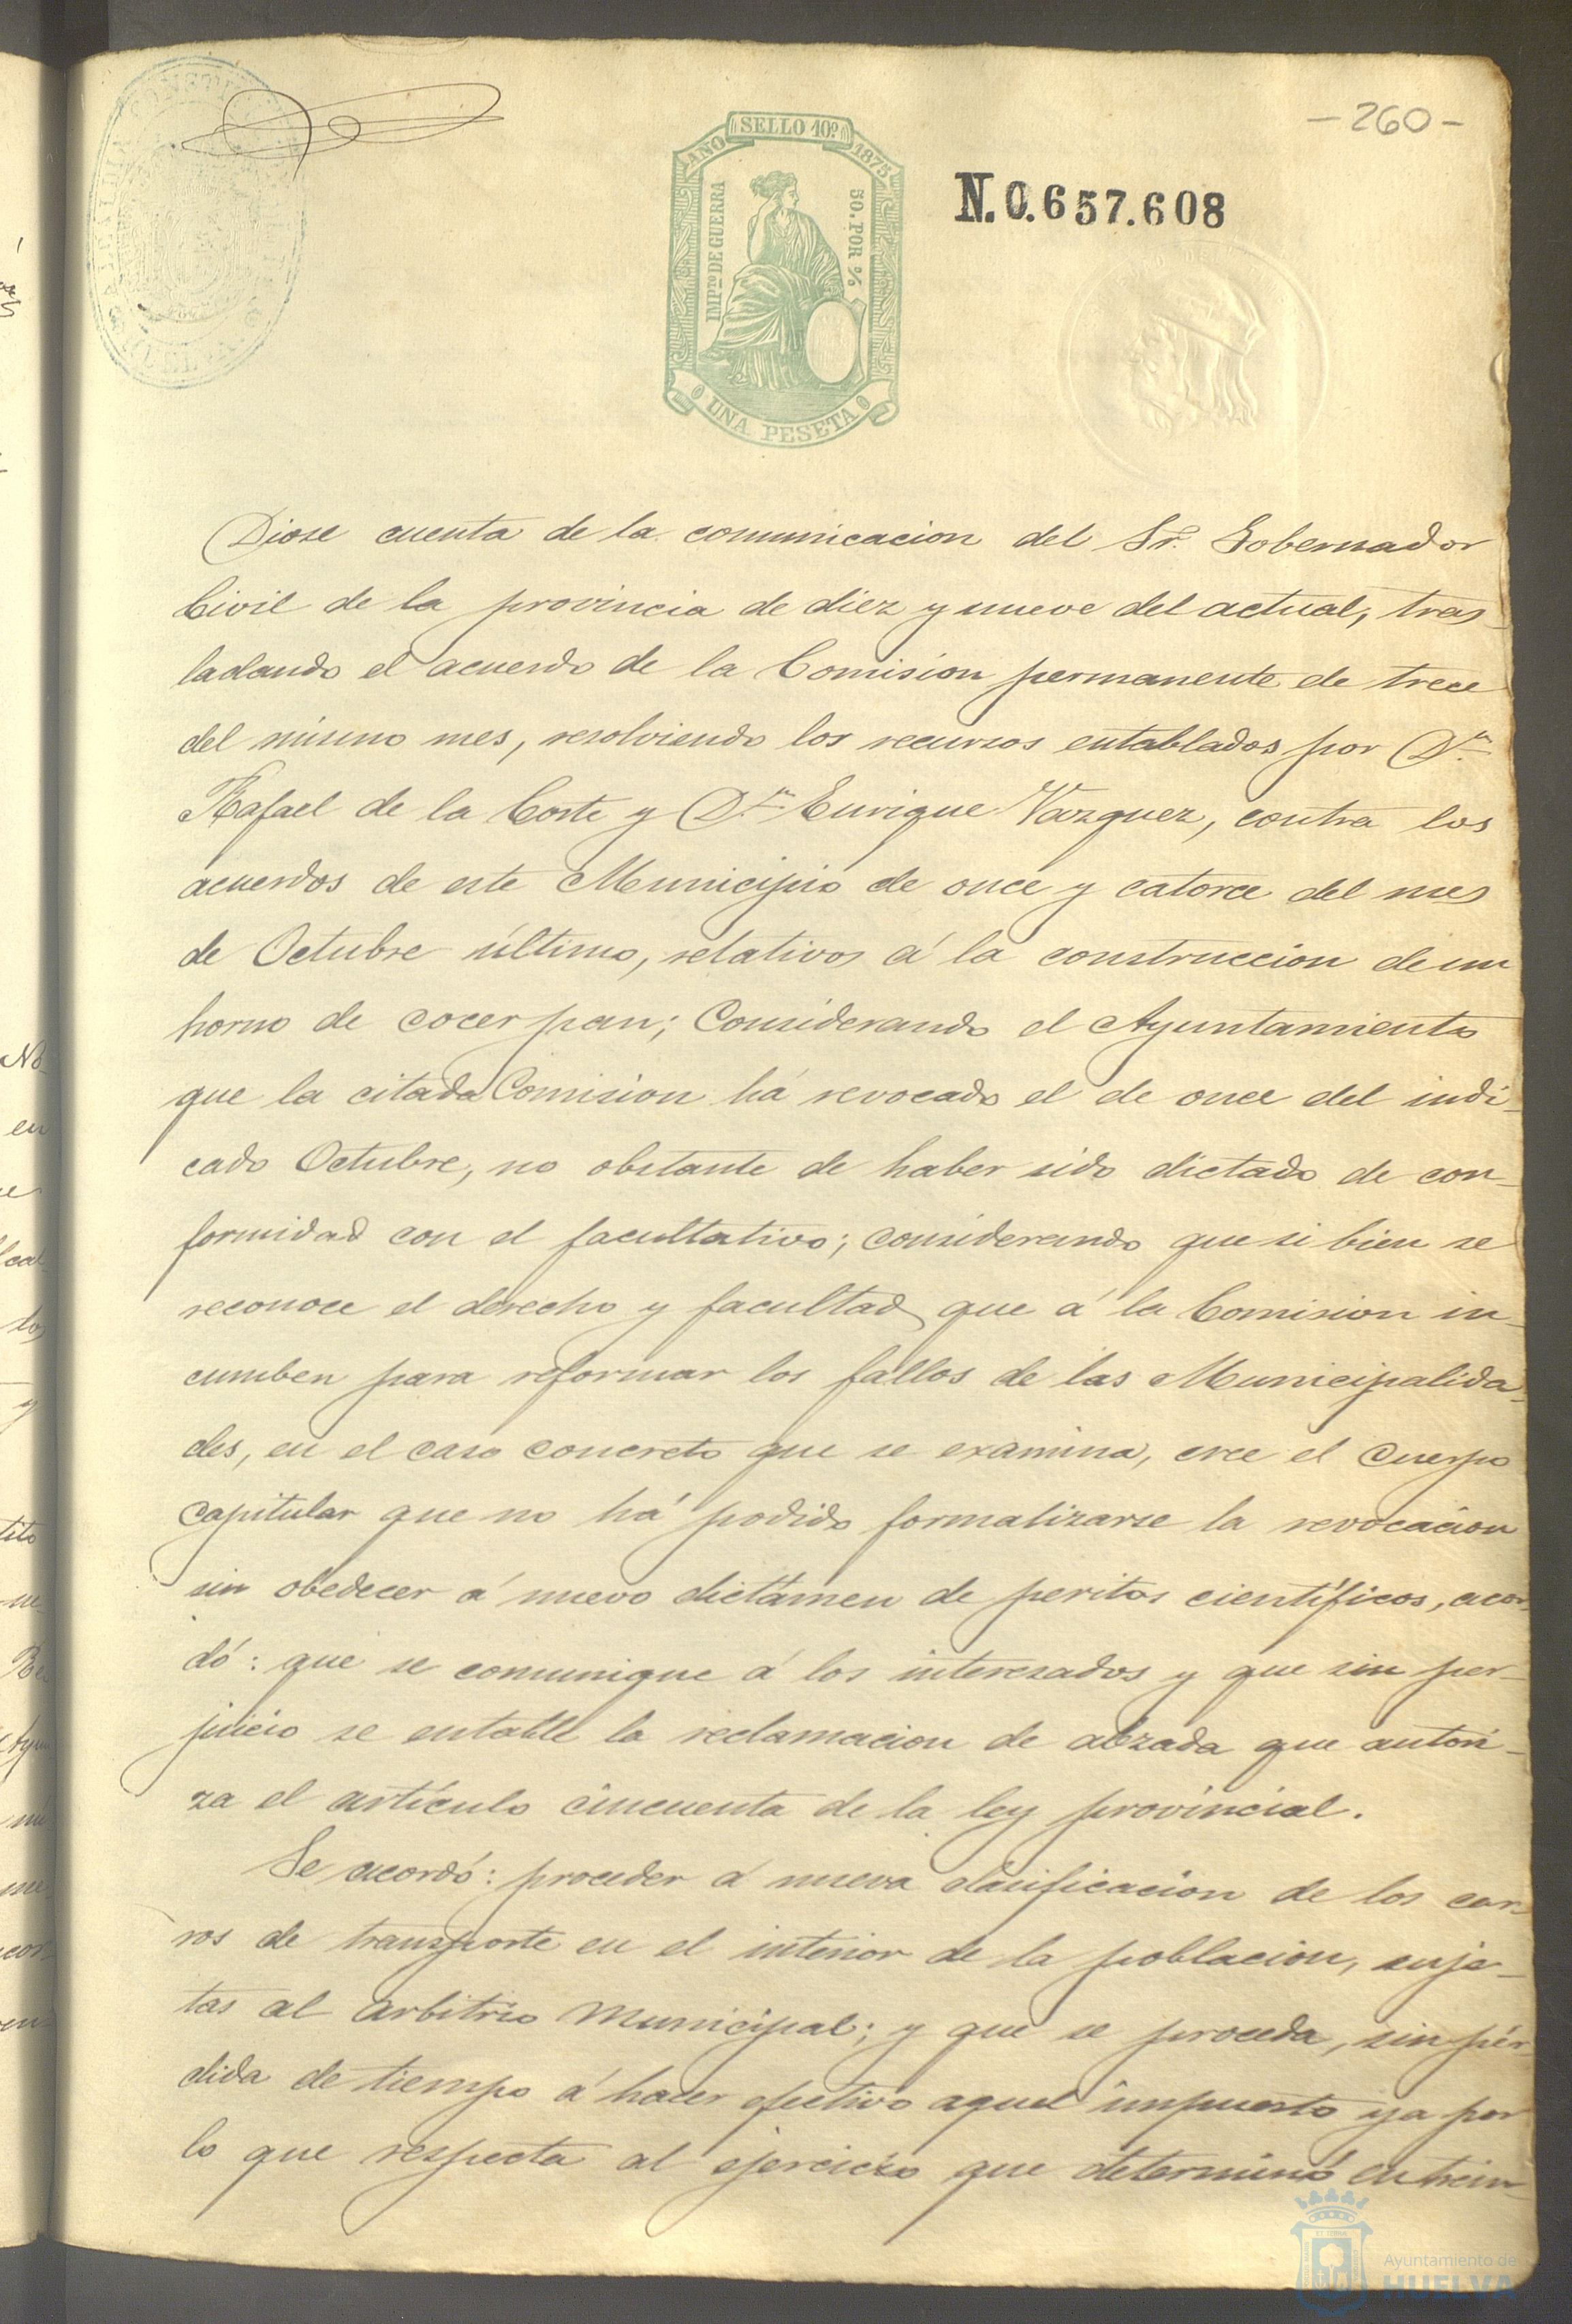 - 260 -
SELLO 10º
AÑO 1875
IMPTO DE GUERRA
50. POR %
UNA PESETA
N.0.657.608
HUELVA
Diose cuenta de la comunicacion del Sr. Gobernador
Civil de la provincia de diez y nueve del actual, tras-
ladando el acuerdo de la Comision permanente de trece
del mismo mes, resolviendo los recursos entablados por Dn.
Rafael de la Corte y Dn. Enrique Vazquez, contra los
acuerdos de este Municipio de once y catorce del mes
de Octubre último, relativos á la construccion de un
horno de cocer pan; Considerando el Ayuntamiento
que la citada Comision há revocado el de once del indi-
cado Octubre, no obstante de haber sido dictado de con-
formidad con el facultativo; considerando que si bien se
reconoce el derecho y facultad que á la Comision in-
cumben para reformar los fallos de las Municipalida-
des, en el caso concreto que se examina, cree el Cuerpo
capitular que no há podido formalizarse la revocacion
sin obedecer á nuevo dictámen de peritos científicos, acor-
dó: que se comunique á los interesados y que sin per-
juicio se entable la reclamacion de alzada que autori-
za el artículo cincuenta de la ley provincial.
Se acordó: proceder á nueva clasificacion de los car-
ros de transporte en el interior de la poblacion, suje-
tas al arbitrio Municipal; y que se proceda, sin pér-
dida de tiempo á hacer efectivo aquel impuesto ya por
lo que respecta al ejercicio que determinó en trein-
Ayuntamiento de
HUELVA